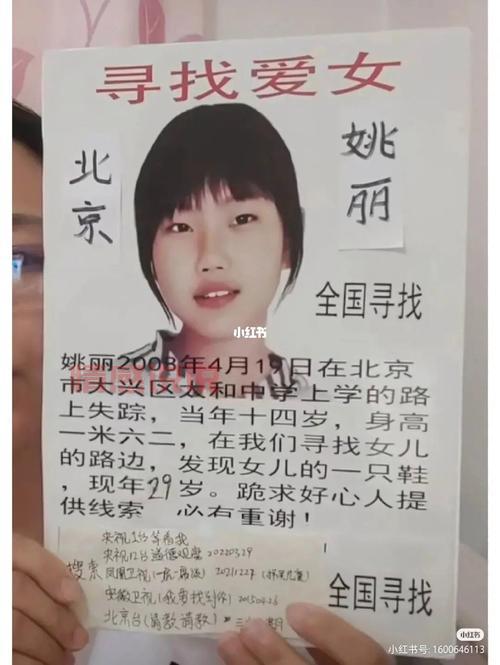 寻找爱女
北京
姚丽
全国寻找
小红书
姚丽2008年4月19日在北京
市大兴区太和中学上学的路
上失踪，当年十四岁，身高
一米六二，在我们寻找女儿
的路边，发现女儿的一只鞋
，现年29岁。跪求好心人提
供线索 必有重谢！
央视1台等着我
央视12台道德观察 20220329
搜索 凤凰卫视(一虎一席谈) 20211227
安徽卫视(我要找到你) 20150426
北京台(请教请教)
全国寻找
小红书
小红书号: 1600646113